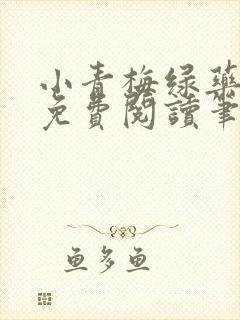 小青梅绿药
免費閱讀筆
鱼多鱼